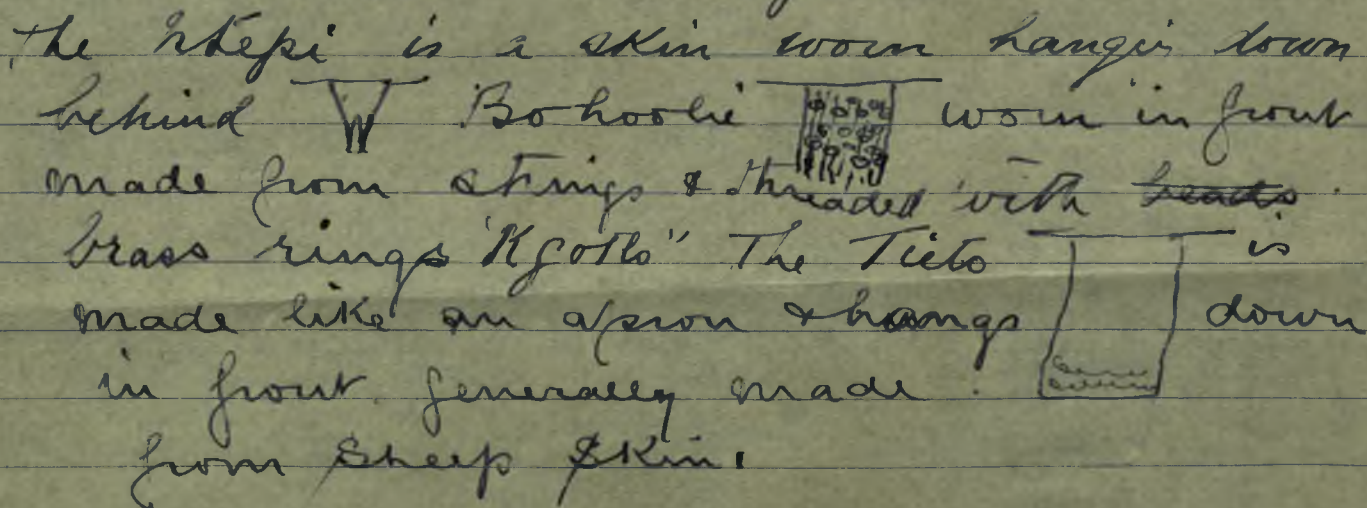 The Ntepi is a skin worn hangin down
behind Bohoolie worn in front
made from strings & threaded with beads
brass rings "Kgotlo" The Tieto is
made like an apron & hangs down
in front. generally made.
from Sheep Skin.